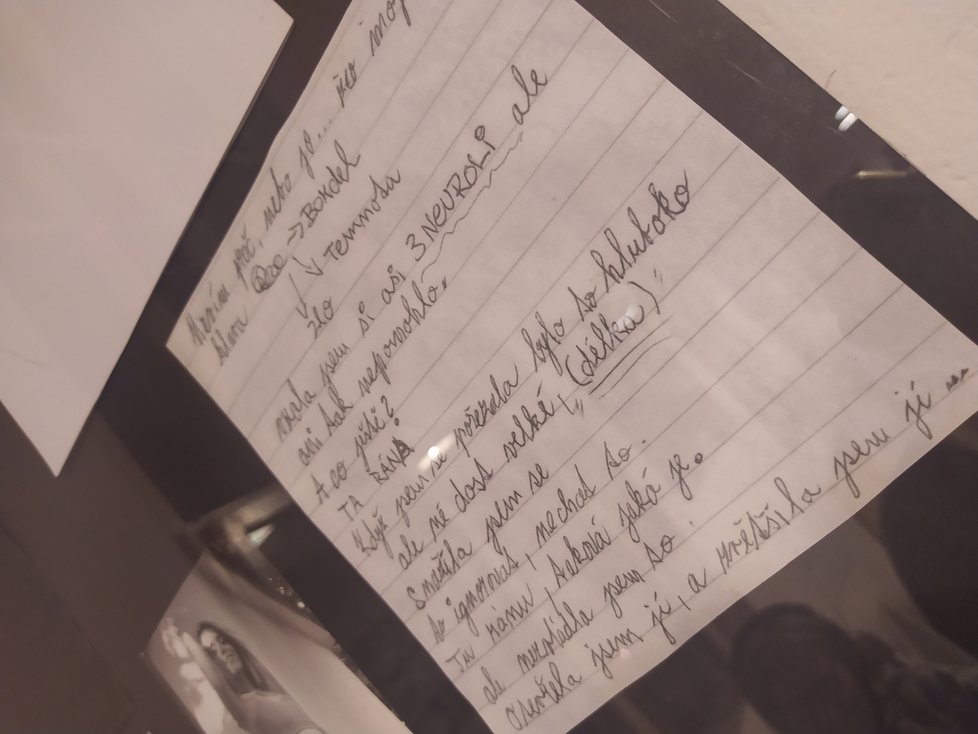 Nevím proč, nebo jo.... co moj
hlava → Bordel
↓ ↘ Temnota
zlo
vzala jsem si asi 3 NEUROLi ale
ani tak nepomohlo.
A co ještě?
TA RANA
Když jsem se pořezala bylo to hluboko
ale né dost velké, „(délka)"
Snažila jsem se
to ignorovat, nechat to.
Tu ránu, taková jaká je.
ale nezvládla jsem to.
Otevřela jsem jí, a zvětšila jsem jí ...